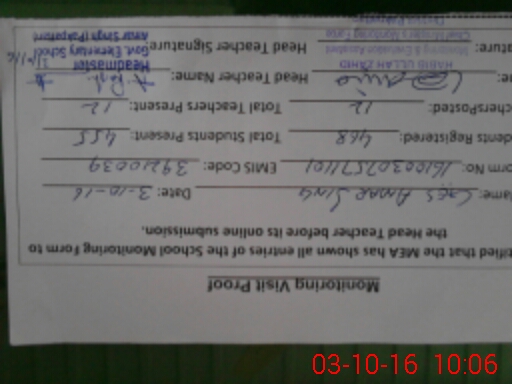 Monitoring Visit Proof
tified that the MEA has shown all entries of the School Monitoring Form to
the Head Teacher before its online submission.
ame: GES AMAR SING Date: 3-10-16
orm No: EMIS Code: 39210039
dents Registered: 468 Total Students Present: 455
chersPosted: 12 Total Teachers Present: 12
e: Head Teacher Name:
ature: Head Teacher Signature:
HABIB ULLAH ZAHID
Monitoring & Evaluation Assistant
Chief Minister's Monitoring Force
District Pakpattan
Headmaster
Govt. Elementary School
Amar Singh (Pakpattan)
03-10-16 10:06